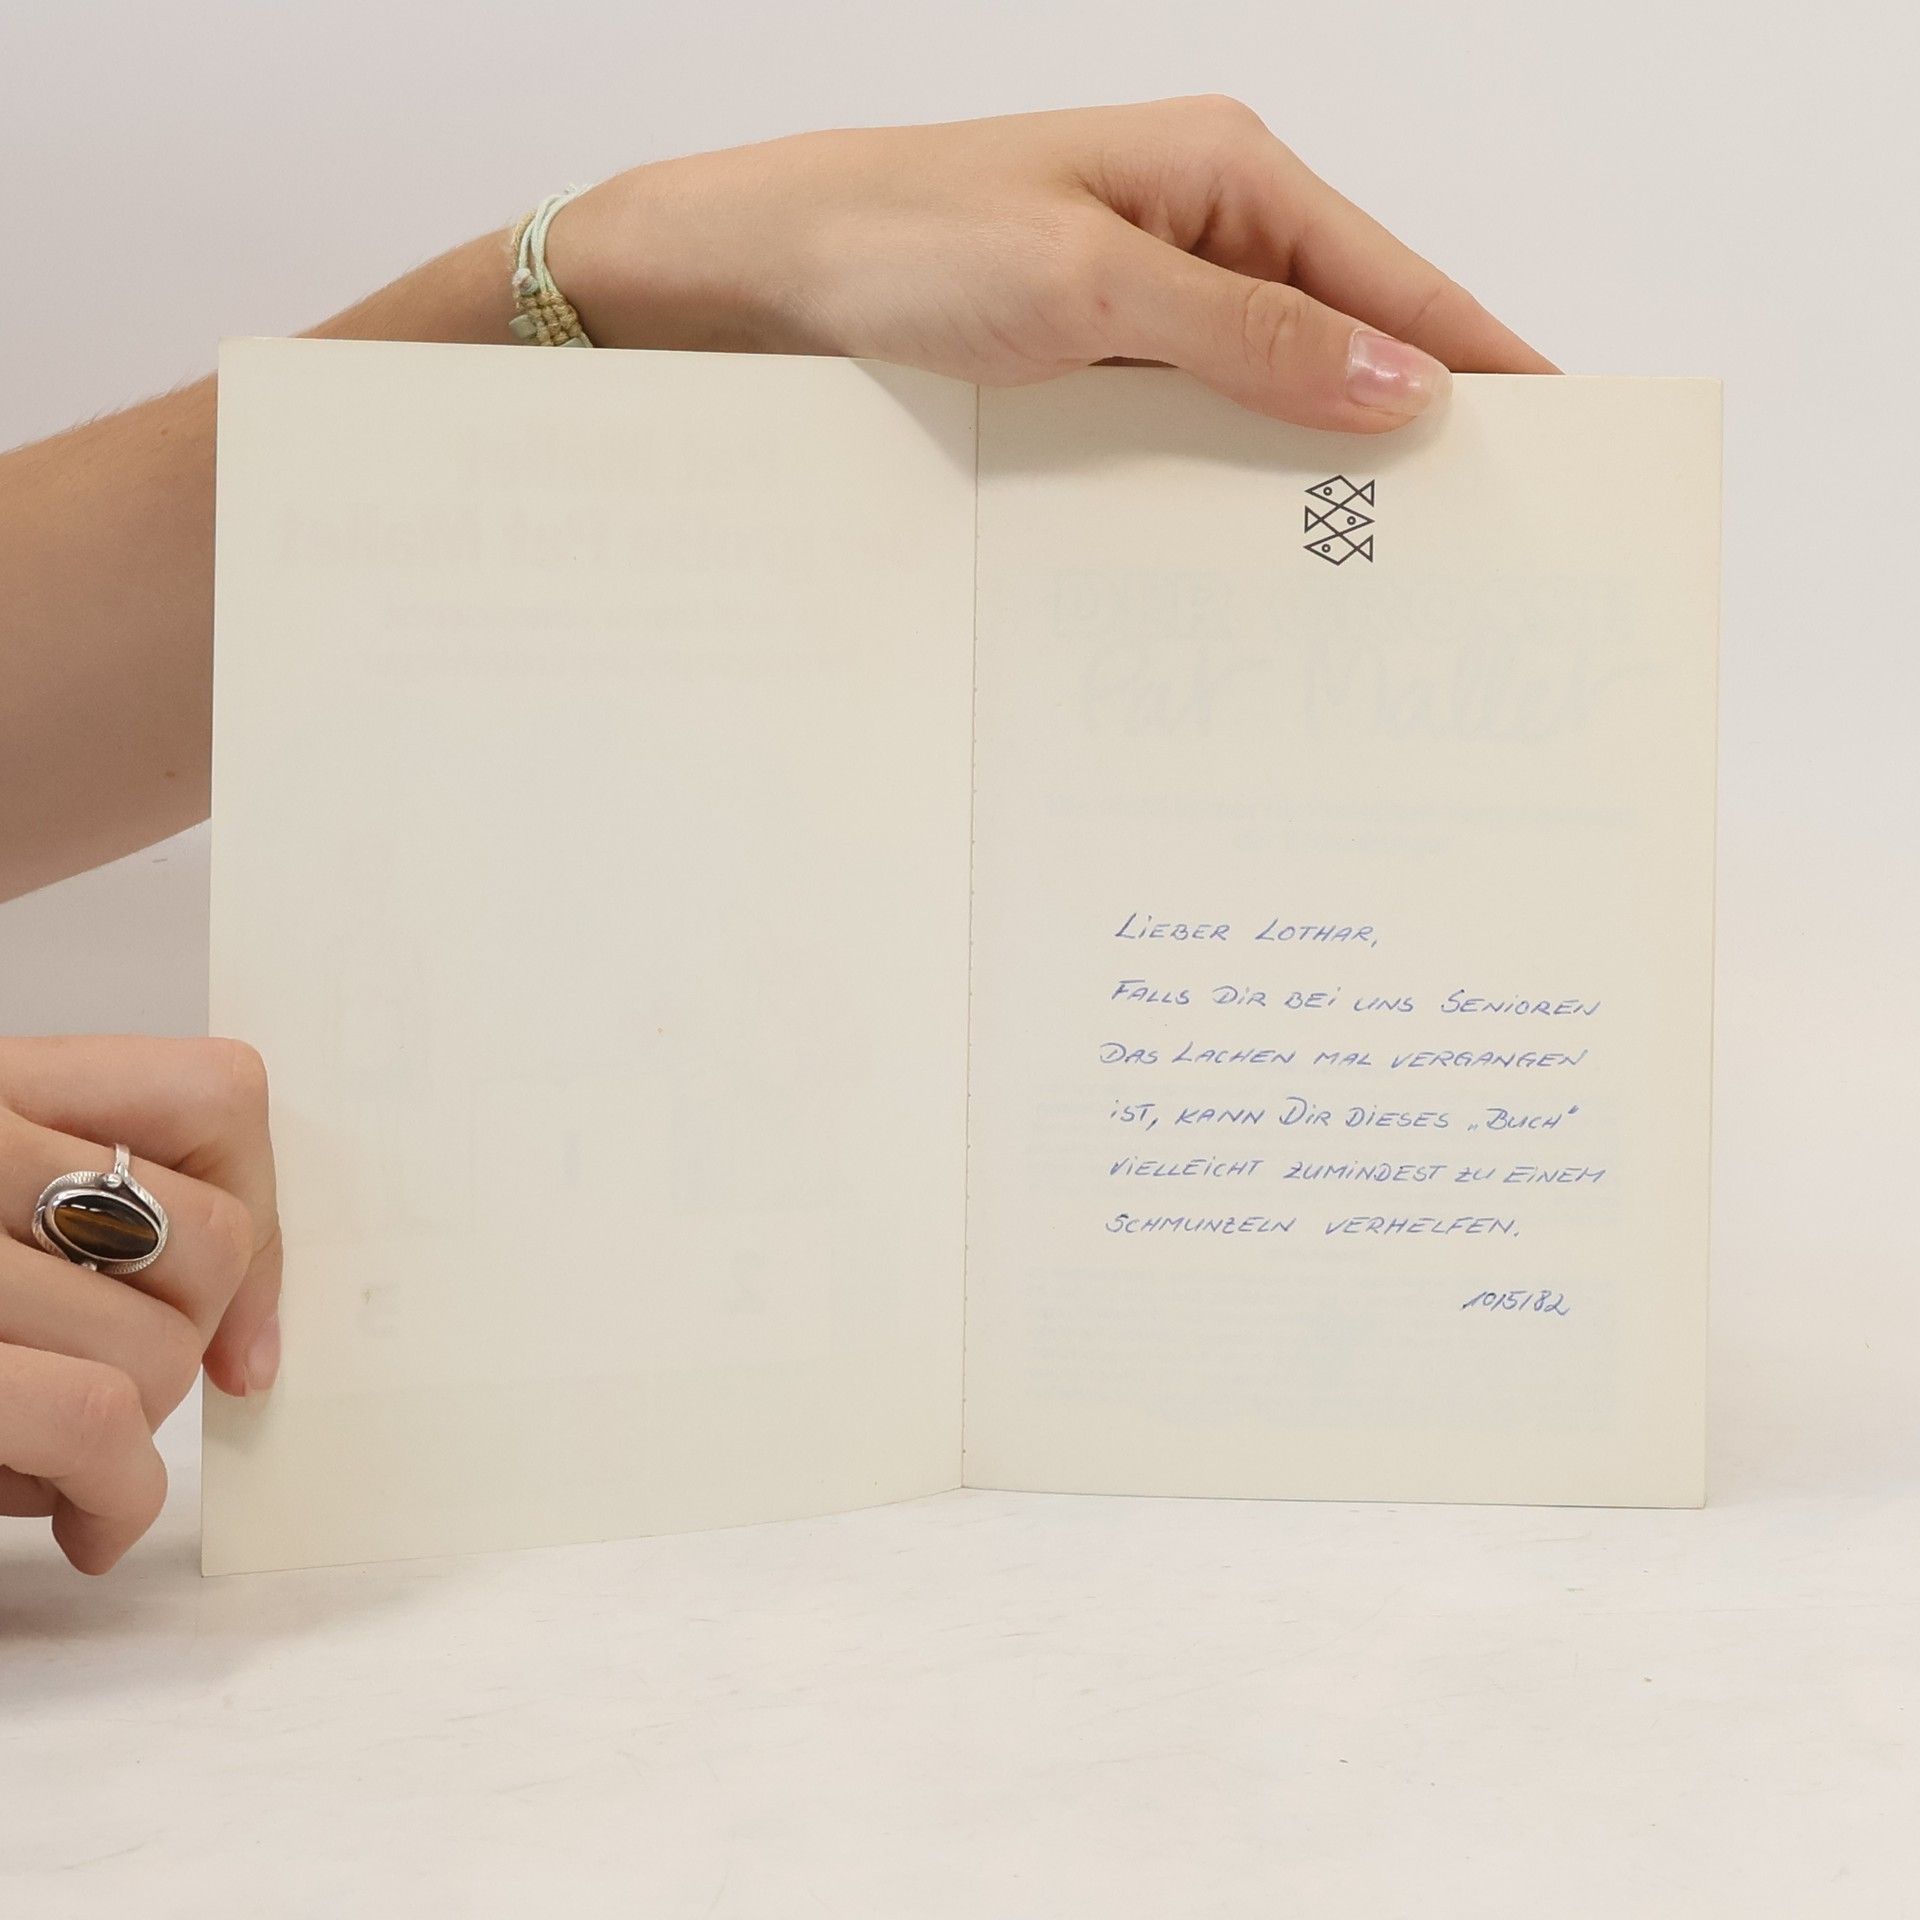 LIEBER LOTHAR,
FALLS DIR BEI UNS SENIOREN
DAS LACHEN MAL VERGANGEN
IST, KANN DIR DIESES „BUCH“
VIELLEICHT ZUMINDEST ZU EINEM
SCHMUNZELN VERHELFEN.
10/5/82